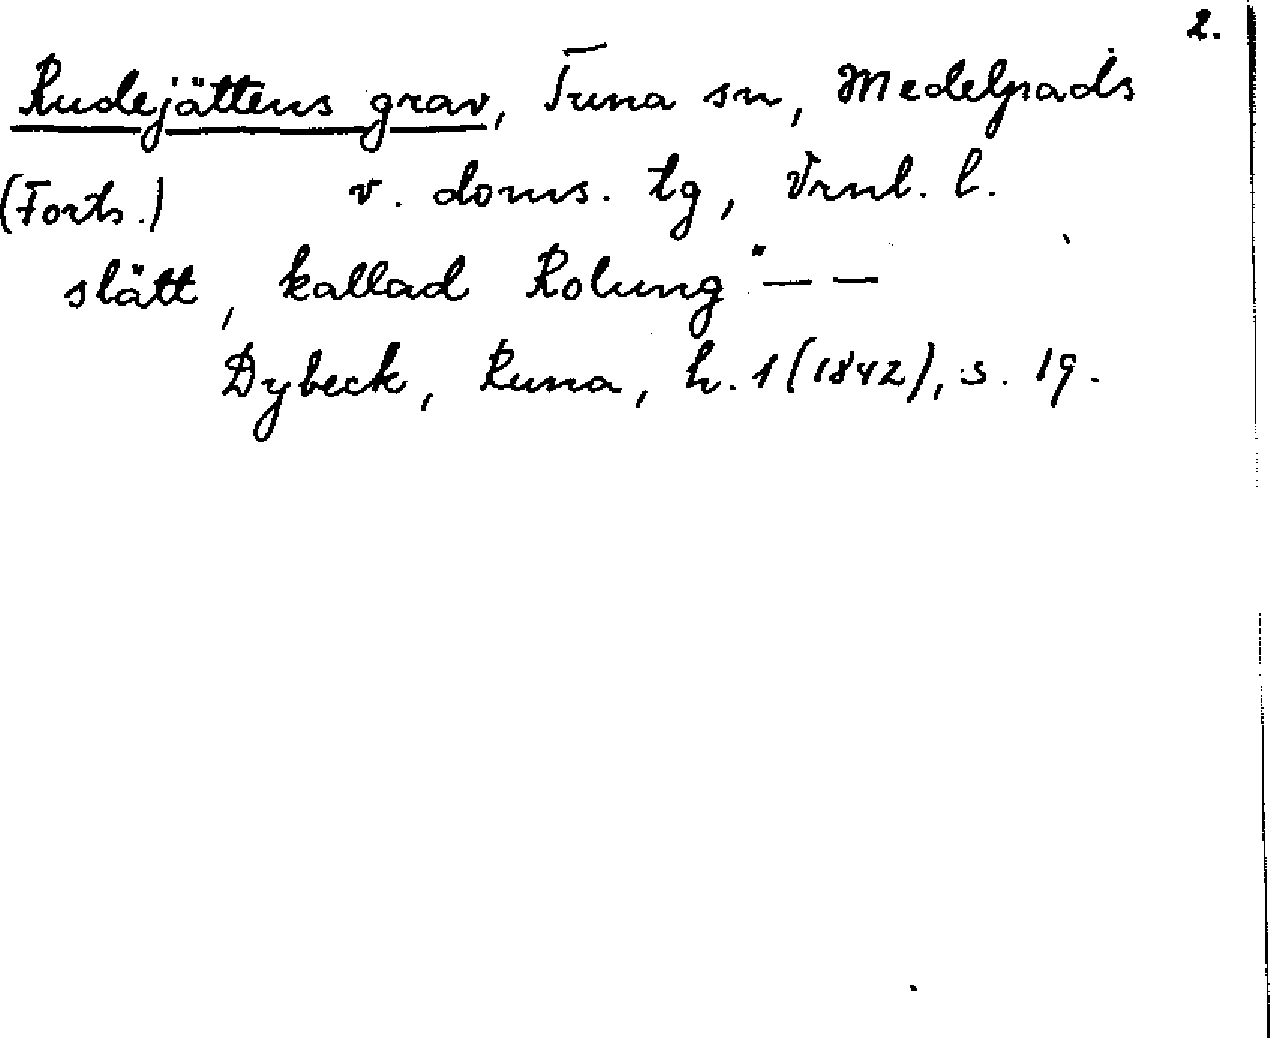 2.
Rudejättens grav, Tuna sn, Medelpads
(Forts.) v. doms. tg, Vrnl. l.
slätt, kallad Rolung" — —
Dybeck, Runa, h. 1 (1842), s. 19.